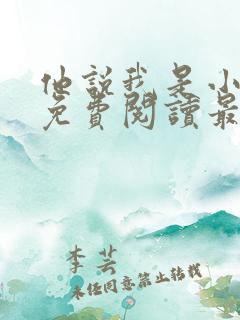 他說我是小
免費閱讀最
李芸
未经同意禁止转载